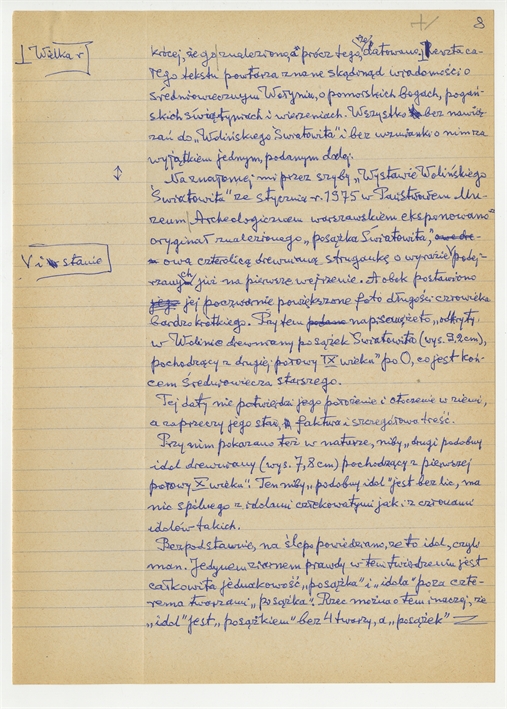 8
Wielka r
krócej, że go znaleziono, a prócz tego, żeź datowano. Reszta ca-
łego tekstu powtarza znane skądinąd wiadomości o
średniowiecznym Wolynie, o pomorskich bogach, pogań-
skich świątyniach i wierzeniach. Wszystko bez nawią-
zań do „Wolińskiego Światowita” i bez wzmianki o nim za
wyjątkiem jednym, podanym dalej.
Na znajomej mi przez szyby „Wystawie Wolińskiego
Światowita” ze stycznia r. 1975 w Państwowem Mu-
zeum Archeologicznem warszawskiem eksponowano
oryginał znalezionego „posążka Światowita,”
V i w stanie
ową czterolicą drewnianą struganką o wyrazie podej-
rzanych już na pierwsze wejrzenie. A obok postawiono
jej poważnie powiększone foto długości człowieka
bardzo krótkiego. Przytem napisano, że to „odkryty
w Wolinie drewniany posążek Światowita (wys. 9,2 cm),
pochodzący z drugiej połowy IX wieku” po 0, co jest koń-
cem średniowiecza starszego.
Tej daty nie potwierdzi jego położenie i otoczenie w ziemi,
a zaprzeczy jego stan, faktura i szczegółowa treść.
Przy nim pokazano też w naturze, niby „drugi podobny
idol drewniany (wys. 7,8 cm) pochodzący z pierwszej
połowy X wieku”. Ten niby „podobny idol” jest bez lic, ma
nic spólnego z idolami człekowatymi jak i z członami
idolów takich.
Bezpodstawnie, na ślepo powiedziano, że to idol, czyli
man. Jedynem ziarnem prawdy w tem twierdzeniu jest
całkowita jednakowość „posążka” i „idola” poza czte-
rema twarzami „posążka”. Rzec można o tem i inaczej, że
„idol” jest „posążkiem” bez 4 twarzy, a „posążek”